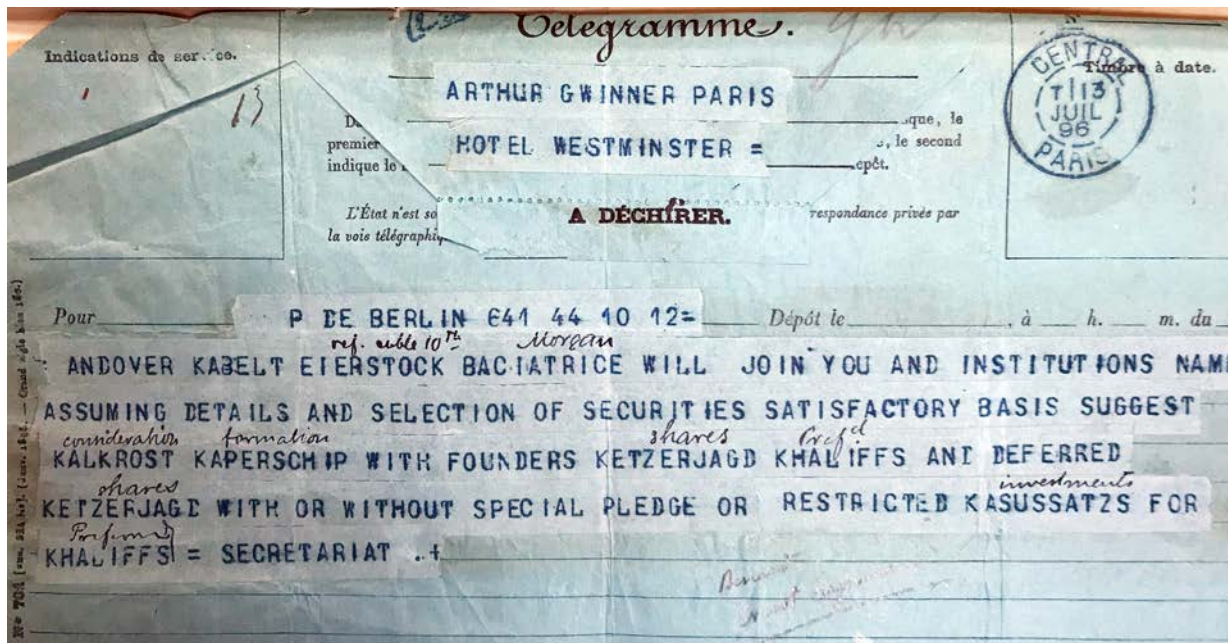 Telegramme.
Indications de service.
Timbre à date.
CENTRAL
13
JUIL
96
PARIS
13
ARTHUR GWINNER PARIS
HOTEL WESTMINSTER =
que, le
premier
, le second
indique le
dépôt.
L'État n'est so
respondance privée par
la voie télégraphiq
A DÉCHIRER.
Pour
P DE BERLIN 641 44 10 12=
Dépôt le , à h. m. du
ref. cable 10th Morgan
ANDOVER KABELT EIERSTOCK BACIATRICE WILL JOIN YOU AND INSTITUTIONS NAM
ASSUMING DETAILS AND SELECTION OF SECURITIES SATISFACTORY BASIS SUGGEST
consideration formation shares Prefd
KALKROST KAPERSCHIP WITH FOUNDERS KETZERJAGD KHALIFFS AND DEFERRED
shares investments
KETZERJAGD WITH OR WITHOUT SPECIAL PLEDGE OR RESTRICTED KASUSSATZS FOR
Preferred
KHALIFFS = SECRETARIAT .+